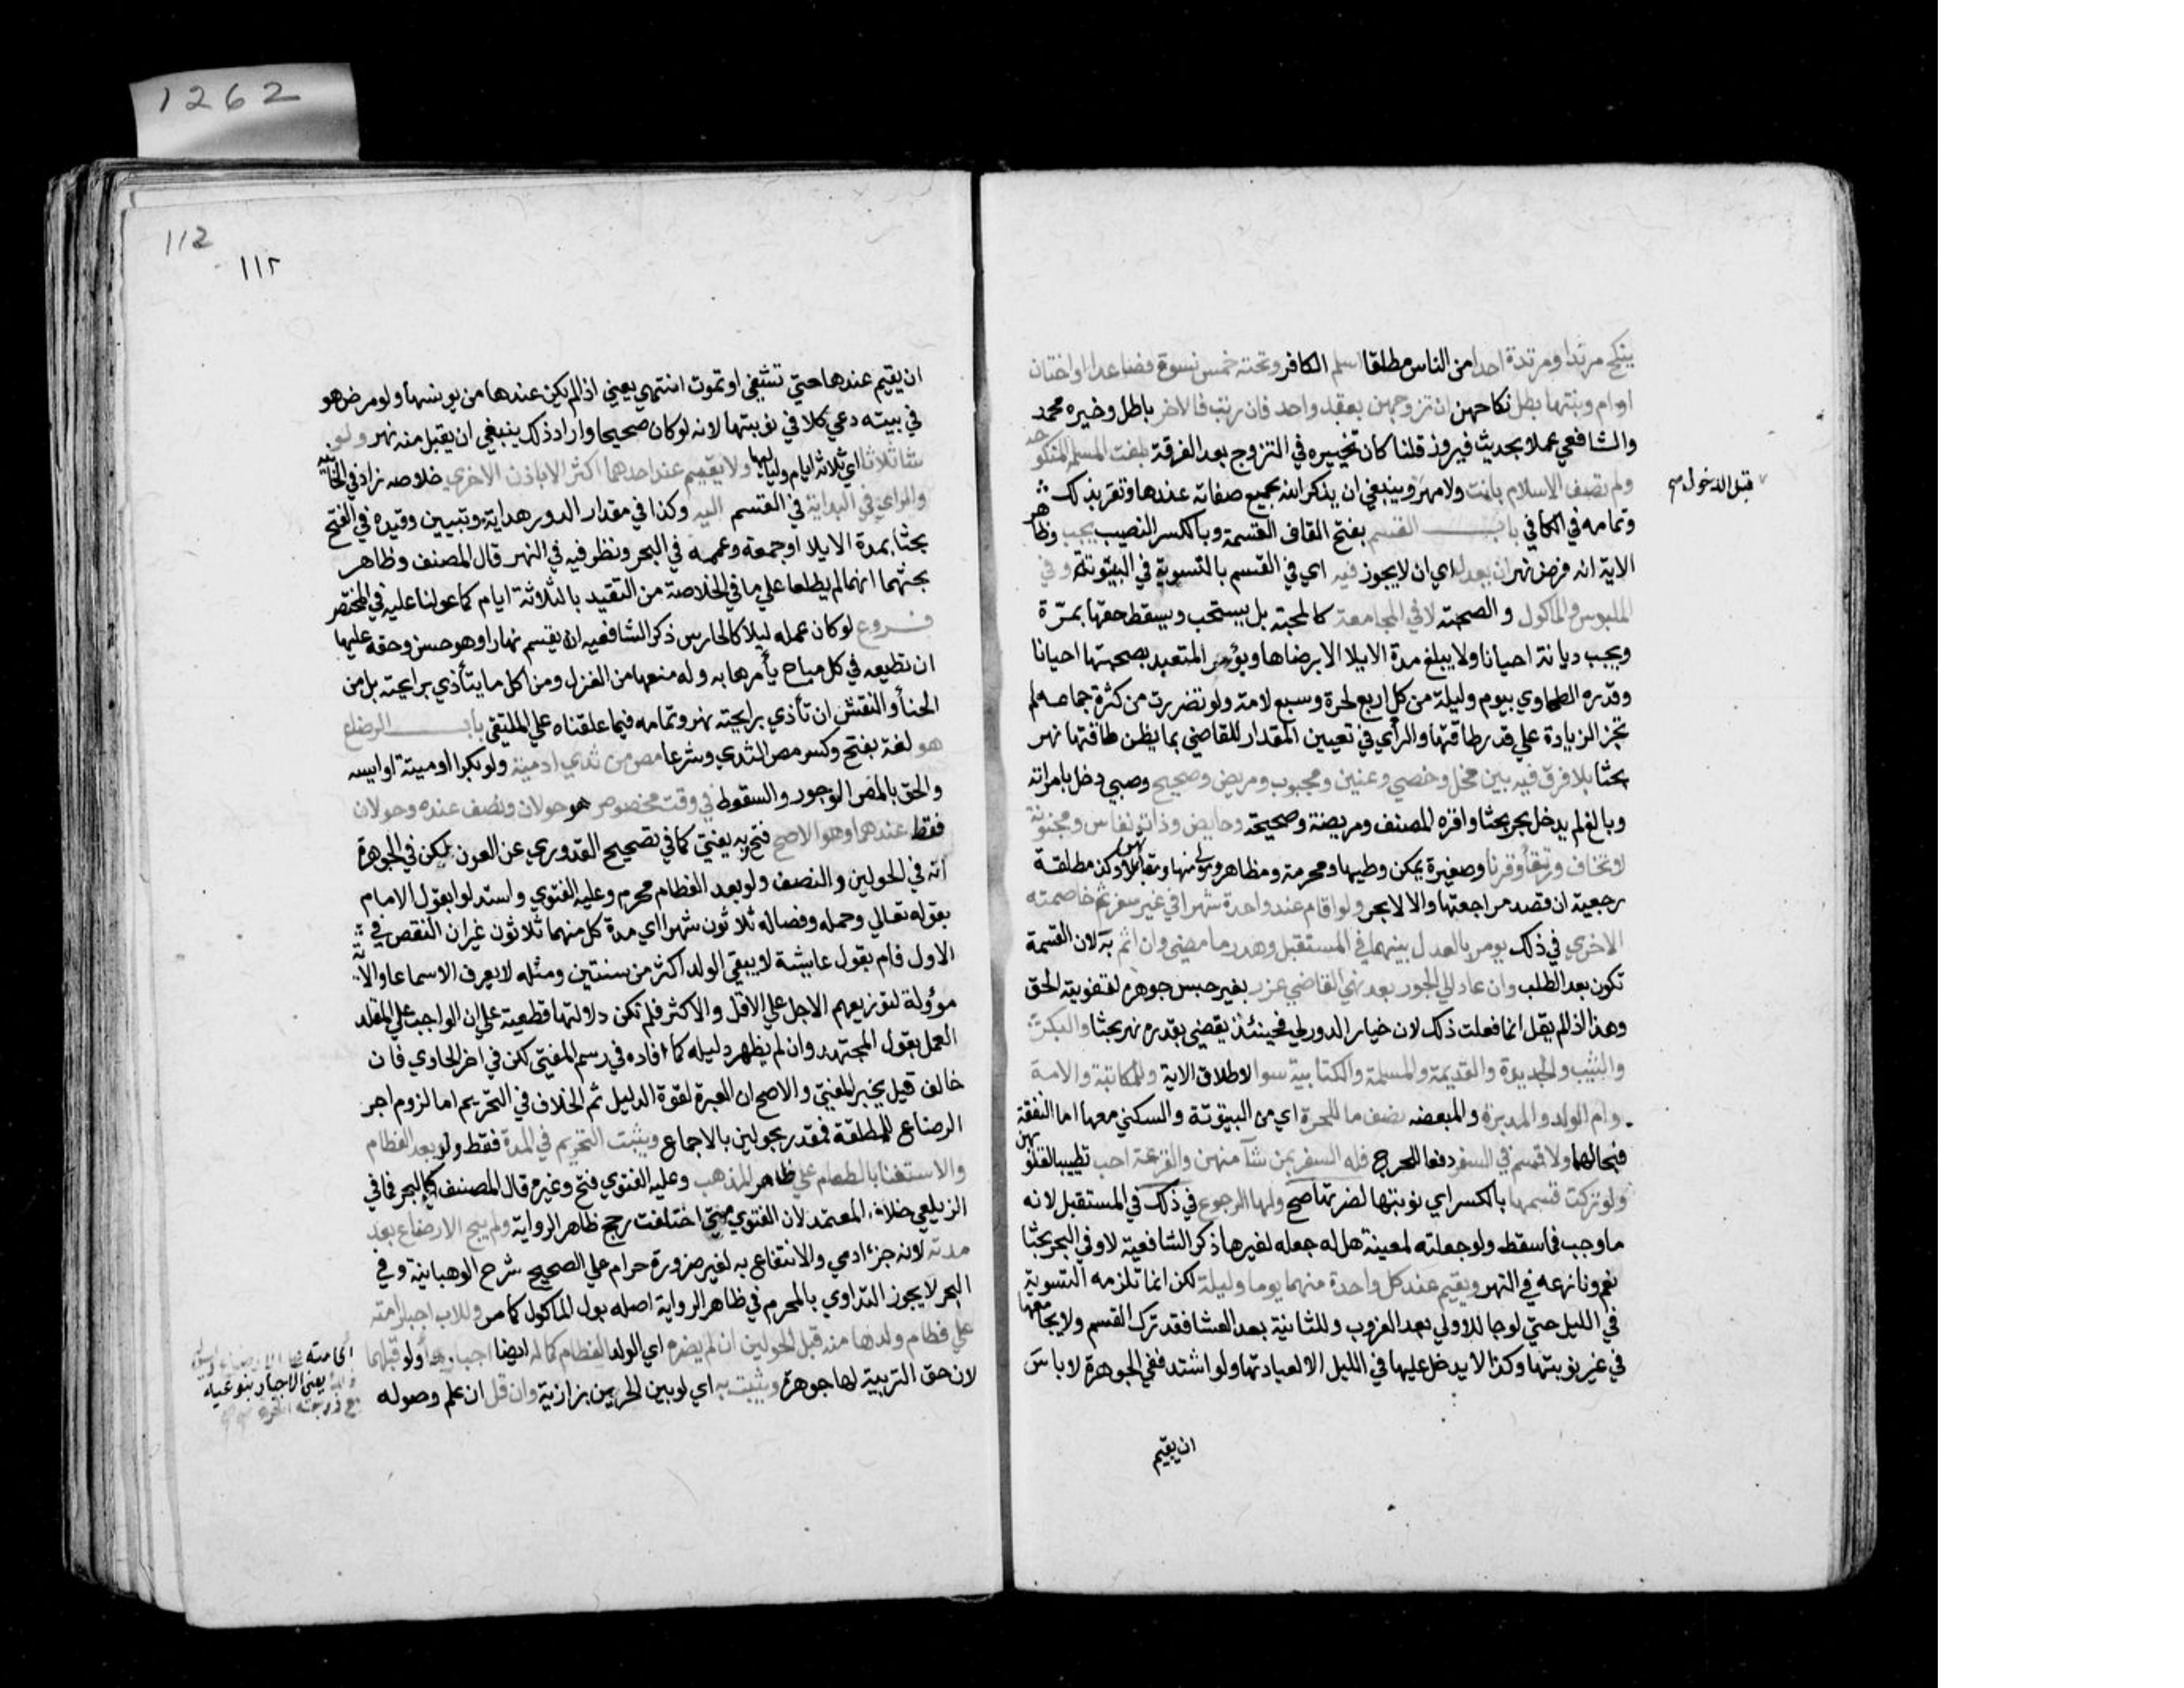 1262
ينكح مرتدا ومرتدة احدا من الناس مطلقا اسلم الكافر وتحته خمس نسوة فصاعدا او اختان
او ام وبنتها بطل نكاحهن ان تزوجهن بعقد واحد فان رتب فالاخر باطل وخيره محمد
والشافعي عملا بحديث فيروز قلنا كان تخييره في التزوج بعد الفرقة بلغت المسلمة المنكوحة
قبل الدخول صح
ولم تصف الاسلام بانت ولا مهر وينبغي ان يذكر الله بجميع صفاته عندها وتقر بذلك
وتمامه في الكافي باب القسم بفتح القاف القسمة وبالكسر النصيب يجب وظاهر
الاية انه فرض نهر ان يعدل اي ان لا يجوز فيه اي في القسم بالتسوية في البيتوتة وفي
الملبوس والماكول والصحبة لا في المجامعة كالمحبة بل يستحب ويسقط حقها بمرة
ويجب ديانة احيانا ولا يبلغ مدة الايلا الا برضاها ويؤمر المتعبد بصحبتها احيانا
وقدره الطحاوي بيوم وليلة من كل اربع لحرة وسبع لامة ولو تضررت من كثرة جماعه لم
تجز الزيادة علي قدر طاقتها والرأي في تعيين المقدار للقاضي بما يظن طاقتها نهر
بحثا بلا فرق فيه بين فحل وخصي وعنين ومجبوب ومريض وصحيح وصبي دخل بامراته
وبالغ لم يدخل بحر بحثا واقره المصنف ومريضة وصحيحة وحايض وذات نفاس ومجنونة
لا تخاف ورتقا وقرنا وصغيرة يمكن وطيها ومحرمة ومظاهر ومولي منها ومقابلاتهن وكذا مطلقة
رجعية ان قصد مراجعتها والا لا بحر ولو اقام عند واحدة شهرا في غير سفر ثم خاصمته
الاخري في ذلك يومر بالعدل بينهما في المستقبل وهدر ما مضي وان اثم به لان القسمة
تكون بعد الطلب وان عاد الي الجور بعد نهي القاضي عزر بغير حبس جوهرة لتفويته الحق
وهذا اذا لم يقل انما فعلت ذلك لان خيار الدور لي فحينئذ يقضي بقدره نهر بحثا والبكر
والثيب والجديدة والقديمة والمسلمة والكتابية سوا لاطلاق الاية وللمكاتبة والامة
وام الولد والمدبرة والمبعضه نصف ما للحرة اي من البيتوتة والسكني معها اما النفقة
فبحالهما ولا قسم في السفر دفعا للحرج فله السفر بمن شآ منهن والقرعة احب تطييبا لقلوبهن
ولو تركت قسمها بالكسر اي نوبتها لضرتها صح ولها الرجوع في ذلك في المستقبل لانه
ما وجب فما سقط ولو جعلته لمعينة هل له جعله لغيرها ذكر الشافعية لا وفي البحر بحثا
نعم ونازعه في النهر ويقيم عند كل واحدة منهما يوما وليلة لكن انما تلزمه التسوية
في الليل حتي لو جا للاولي بعد الغروب وللثانية بعد العشا فقد ترك القسم ولا يجامعها
في غير نوبتها وكذا لا يدخل عليها في الليل الا لعيادتها ولو اشتد ففي الجوهرة لا باس
ان يقيم
112
١١٢
ان يقيم عندها حتي تشفي او تموت انتهي يعني اذا لم يكن عندها من يونسها ولو مرض هو
في بيته دعي كلا في نوبتها لانه لو كان صحيحا واراد ذلك ينبغي ان يقبل منه نهر ولو
شا ثلاثا اي ثلاثة ايام ولياليها ولا يقيم عند احدهما اكثر الا باذن الاخري خلاصه زاد في الخانيه
والراي في البداية في القسم اليه وكذا في مقدار الدور هداية وتبيين وقيده في الفتح
بحثا بمدة الايلا او جمعة وعممه في البحر ونظر فيه في النهر قال المصنف وظاهر
بحثهما انهما لم يطلعا علي ما في الخلاصة من التقيد بالثلاثة ايام كما عولنا عليه في المختصر
فروع لو كان عمله ليلا كالحارس ذكر الشافعيه ان يقسم نهارا وهو حسن وحقه عليها
ان تطيعه في كل مباح يأمرها به وله منعها من الغزل ومن اكل ما يتأذي برايحته بل من
الحنأ والنقش ان تأذي برايحته نهر وتمامه فيما علقناه علي الملتقي باب الرضاع
هو لغة بفتح وكسر مص الثدي وشرعا مص من ثدي ادمية ولو بكرا او ميتة او ايسه
والحق بالمص الوجور والسقوط في وقت مخصوص هو حولان ونصف عنده وحولان
فقط عندهما وهو الاصح فتح وبه يفتي كما في تصحيح القدوري عن العون لكن في الجوهرة
انه في الحولين والنصف ولو بعد الفطام محرم وعليه الفتوي واستدلوا بقول الامام
بقوله تعالي وحمله وفصاله ثلاثون شهرا اي مدة كل منهما ثلاثون غير ان النقص في
الاول قام بقول عايشة لا يبقي الولد اكثر من سنتين ومثله لا يعرف الا سماعا والاية
مؤولة لتوزيعهم الاجل علي الاقل والاكثر فلم تكن دلالتها قطعية علي ان الواجب علي المقلد
العمل بقول المجتهد وان لم يظهر دليله كما افاده في رسم المفتي لكن في اخر الحاوي فان
خالفا قيل يخير المفتي والاصح ان العبرة لقوة الدليل ثم الخلاف في التحريم اما لزوم اجر
الرضاع للمطلقة فمقدر بحولين بالاجماع ويثبت التحريم في المدة فقط ولو بعد الفطام
والاستغنا بالطعام علي ظاهر المذهب وعليه الفتوي فتح وغيره قال المصنف كالبحر فما في
الزيلعي خلاف المعتمد لان الفتوي متي اختلفت رجح ظاهر الرواية ولم يبح الارضاع بعد
مدته لانه جزء ادمي والانتفاع به لغير ضرورة حرام علي الصحيح شرح الوهبانية وفي
البحر لا يجوز التداوي بالمحرم في ظاهر الرواية اصله بول الماكول كما مر وللاب اجبار امته
علي فطام ولدها منه قبل الحولين ان لم يضره اي الولد الفطام كما له ايضا اجبارها ولو قبلهما
لان حق التربية لها جوهرة ويثبت به اي لو بين الحربيين بزازية وان قل ان علم وصوله
يعني الاجبار بنوعيه